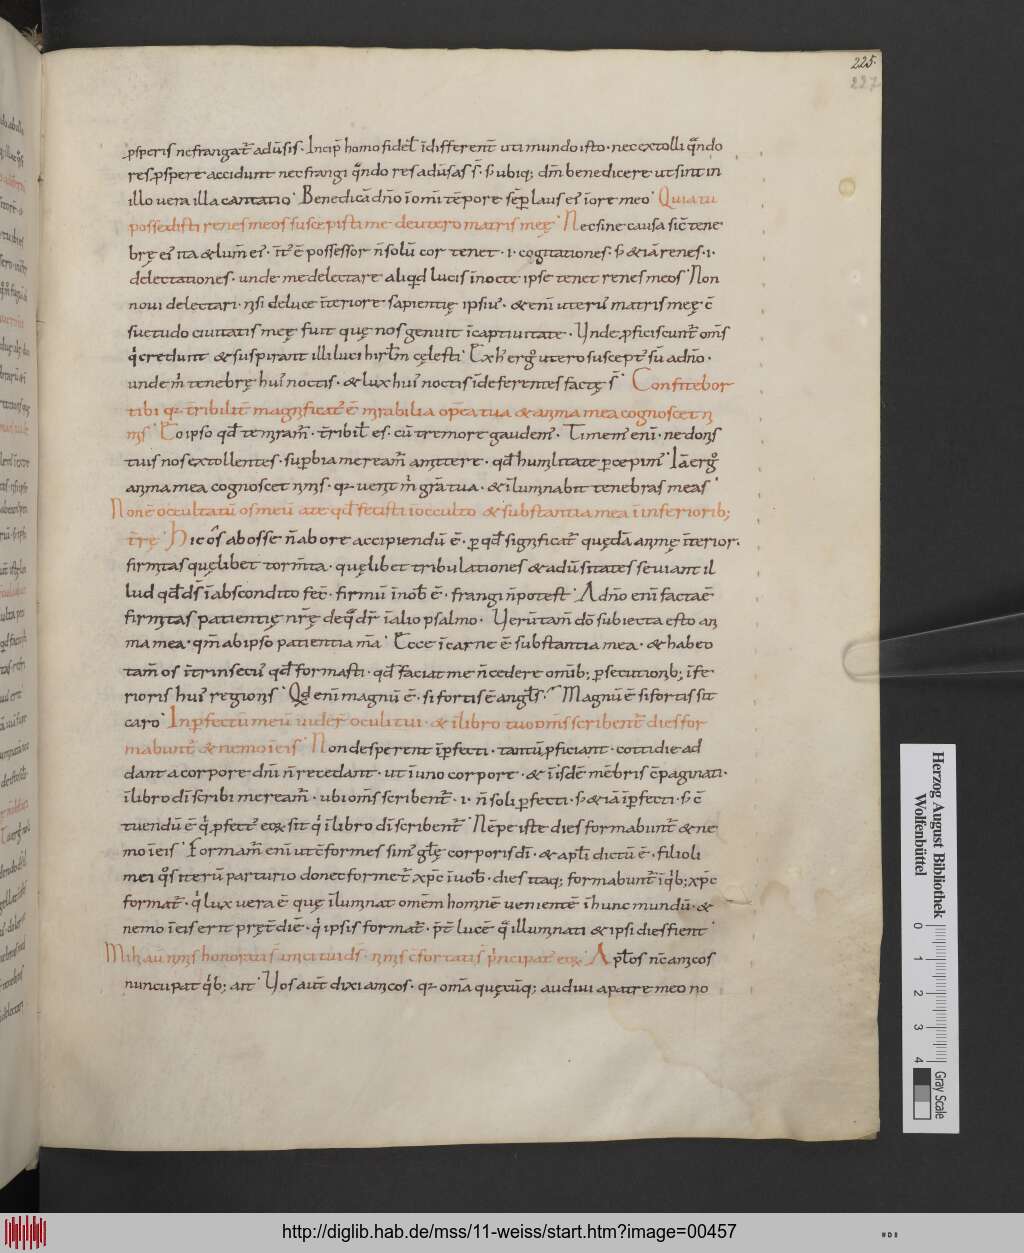 225.
227
ꝓsperis nefrangat̄ adūsis· Incip̄ homo fidel̄ īdifferent̄ uti mundo isto· nec extolli qn̄do
res ꝓspere accidunt nec frangi qn̄do res adūsas s̄· s; ubiq; dn̄m benedicere ut sint in
illo uera illa cantatio· Benedicā dn̄o īomī tēpore sēꝑ laus eī īore meo· Quia tu
possedisti renes meos suscepisti me deutero matris meę· Nec sine causa sic̄ tene
brę eī ita & lum̄ eī· īt̄ ē possessor n̄ solū cor tenet ·i· cogitationes· s; & iā renes ·i·
delectationes· unde me delectare aliqd̄ lucis īnocte ipse tenet renes meos· Non
noui delectari· nisi deluce īteriore sapientię ipsiꝰ· & enī uterꝰ matris meę c̄
suetudo ciuitatis meę fuit quę nos genuit īcaptiuitate· Unde ꝓficiscunt̄ om̄s
qi credunt & suspirant illi luci hirl̄m cęlesti· Ex hꝰ ergo utero suscept̄ sū adn̄o·
unde m̄ tenebrę huiꝰ noctis· & lux huiꝰ noctis īdeferentes factę s̄· Confitebor
tibi qꝛ t̄ribilit̄ magnificatꝰ ē mirabilia oꝑa tua & anima mea cognoscet ni
mis· Eo ipso qd̄ te miram̄· t̄ribil̄ es· cū tremore gaudemꝰ· Timemꝰ enī· ne donis
tuis nos extollentes· suꝑbia mereamr̄ amittere· qd̄ humilitate ꝑcepimꝰ· Iā ergo
anima mea cognoscet nimis· qꝛ uenit m̄ gr̄a tua· & īluminabit tenebras meas·
Non ē occultatū os meū ate qd̄ fecisti iocculto & substantia mea īinferiorib;
t̄rę· Hic os̄ abosse n̄ abore accipiendū ē· ꝑ qd̄ significat̄ quędā animę īterior
firmitas quęlibet torm̄ta· quęlibet tribulationes & adūsitates seuiant il
lud qd̄ ds̄ īabscondito fec̄· firmū īnob̄ ē· frangi n̄ potest· Adn̄o enī facta ē
firmitas patientię nr̄ę de quo dr̄ īalio psalmo· Uerūtam̄ dō subiecta esto an
ma mea· qm̄ abipso patientia m̄a· Ecce īcarne ē substantia mea· & habeo
tam̄ os īt̄rinsecꝰ qd̄ formasti· qd̄ faciat me n̄ cedere omīb; ꝑsecutionib; īfe
rioris huiꝰ regionis· Qd̄ enī magnū ē· si fortis ē angl̄s· Magnū ē si fortis sit
caro· Inꝑfectū meū uider̄ oculi tui· & īlibro tuo om̄s scribent̄ dies for
mabunt̄ & nemo īeis· Non desperent īꝑfecti· tantū ꝓficiant· cottidie ad
dant a corpore dn̄i n̄ recedant· ut īuno corpore· & īisdē mēbris c̄paginati·
īlibro dī scribi mereamr̄· ubi om̄s scribent̄ ·i· n̄ soli ꝑfecti· s; & iā īꝑfecti· s; c̄
tuendū ē qi ꝑfectꝰ eoꝝ sit qi īlibro dī scribent̄· Nēpe iste dies formabunt̄ & ne
mo īeis· Formamr̄ enī ut c̄formes simꝰ gl̄ę corporis dī· & apl̄i dictū ē· filioli
mei qos iterū parturio donec formet̄ xp̄c īuob̄· dies itaq; formabunt̄ īqib; xp̄c
format̄· qi lux uera ē quę īluminat omēm hominē uenientē īhunc mundū· &
nemo īeis erit pręt̄ diē· qi ipsis format̄· p̄t̄ lucē qa illuminati & ipsi dies fient·
Mihi aū nimis honorati s̄ amici tui ds̄· nimis c̄fortatis p̄ncipatꝰ eoꝝ· Apl̄os nc̄ amicos
nuncupat qib; ait· Uos aut̄ dixi amicos· qꝛ om̄a quęcūq; audiui apatre meo no
Herzog August Bibliothek
Wolfenbüttel
0 1 2 3 4
Gray Scale
http://diglib.hab.de/mss/11-weiss/start.htm?image=00457